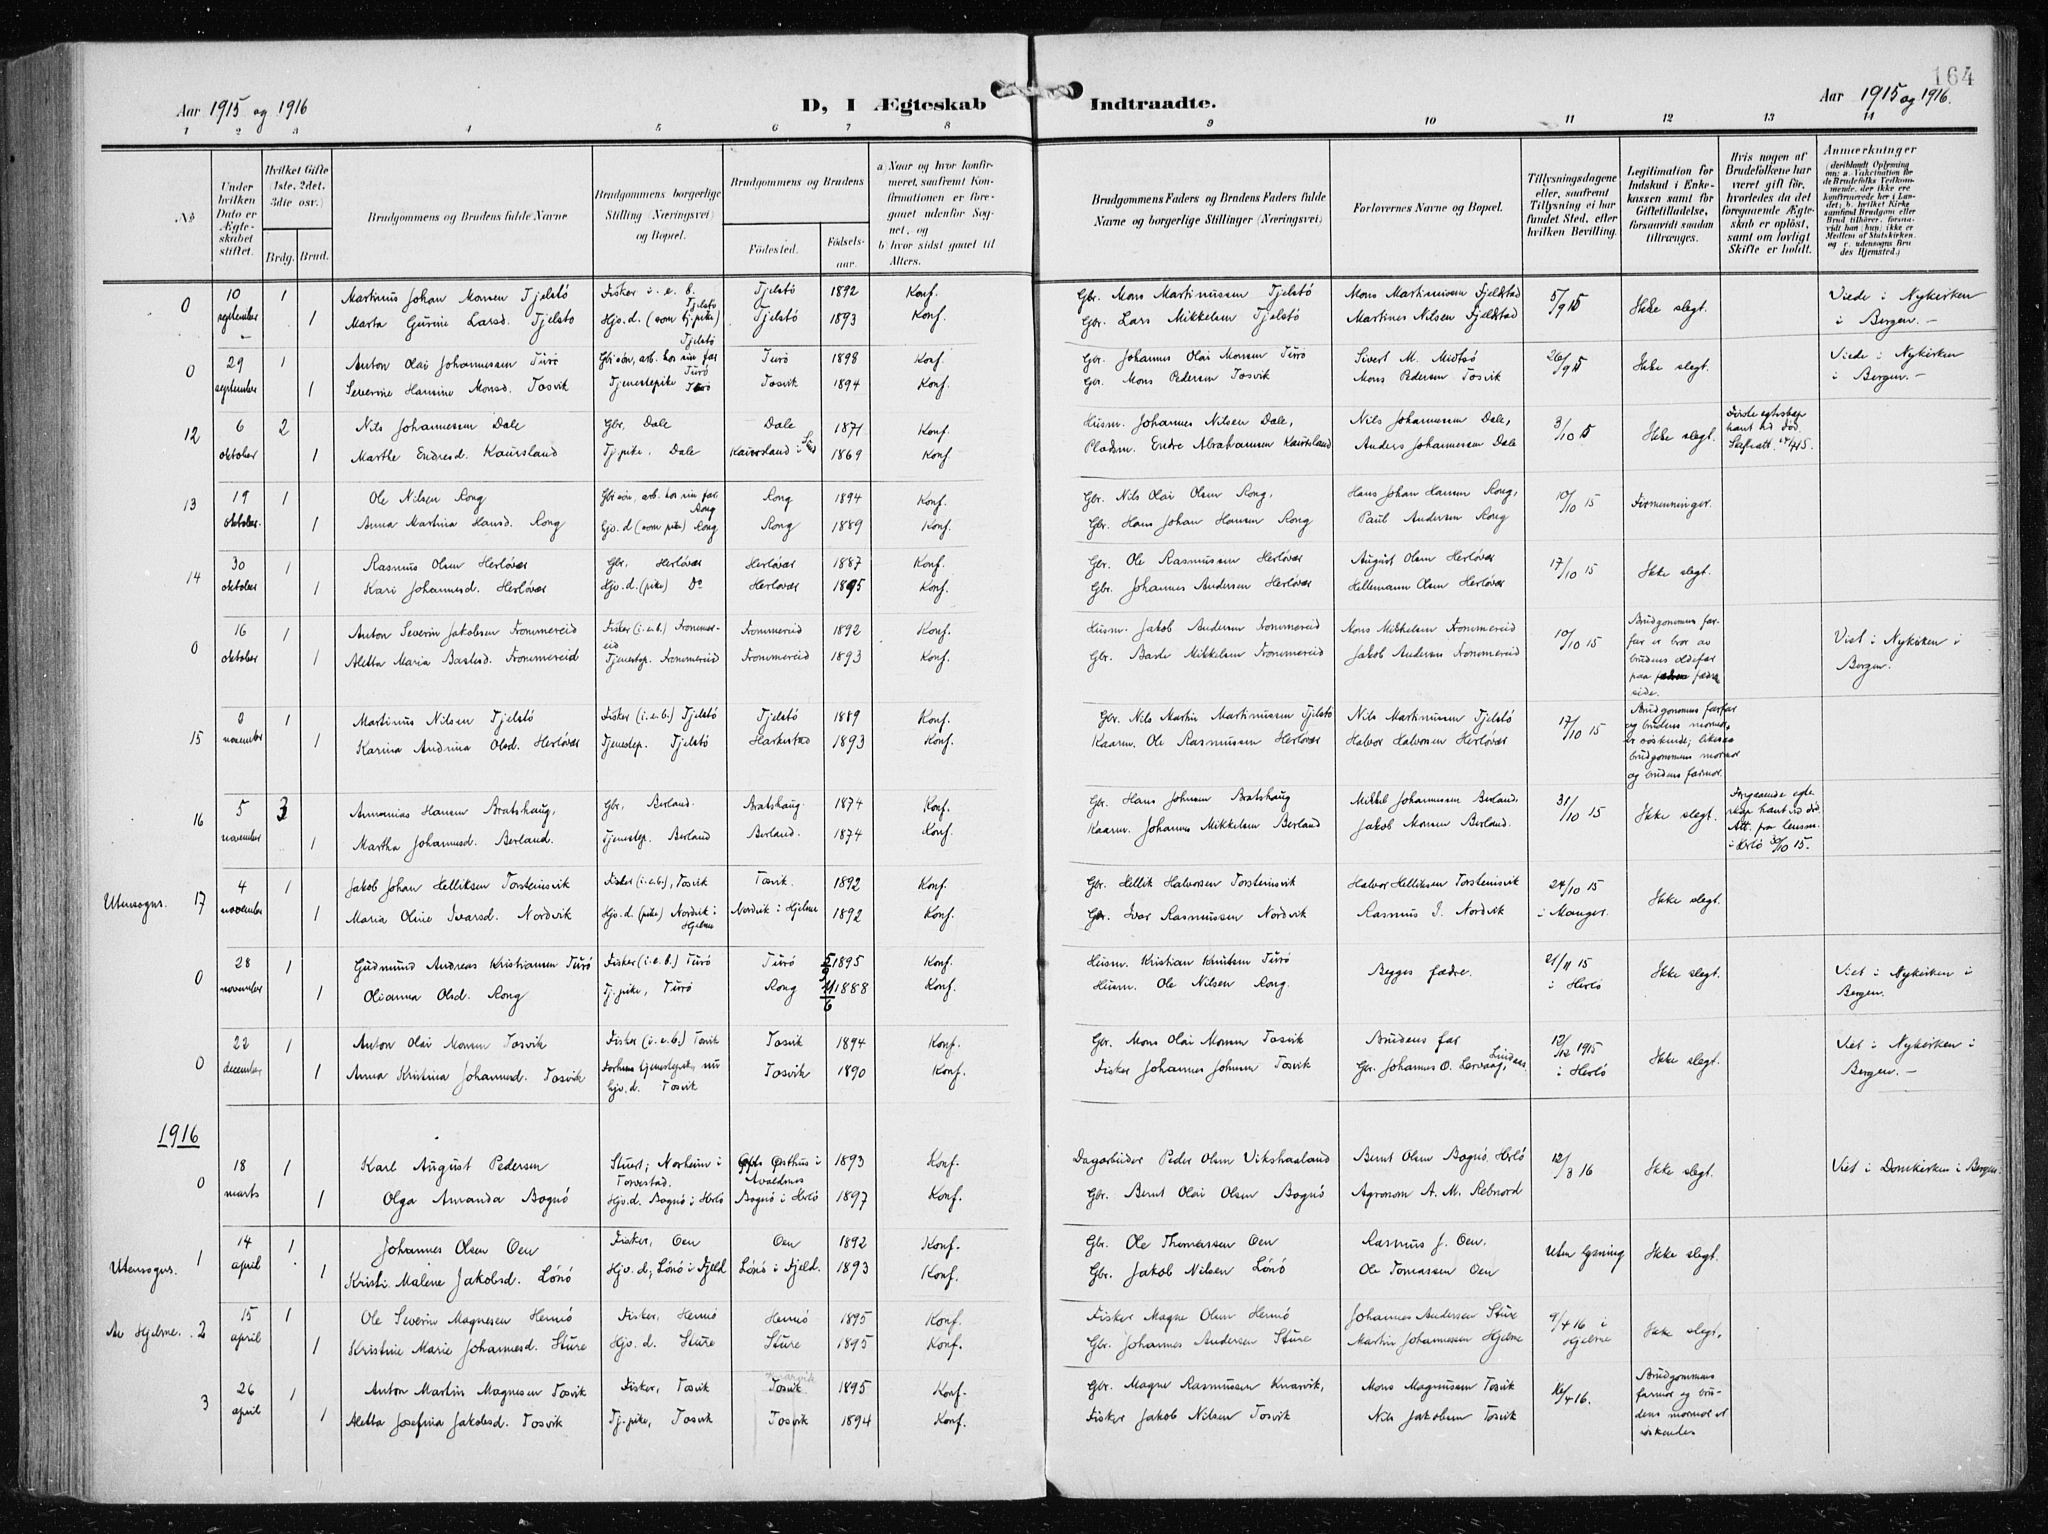 164
Aar 1915 og 1916
D, I Ægteskab Indtraadte.
Aar 1915 og 1916.
1 2 3 4 5 6 7 8 9 10 11 12 13 14
No
Under hvilken Dato er Ægteskabet stiftet.
Hvilket Gifte (1ste, 2det, 3die osv.)
Brdg. Brud.
Brudgommens og Brudens fulde Navne
Brudgommens borgerlige Stilling (Næringsvei) og Bopæl.
Brudgommens og Brudens
Fødested. Fødselsaar.
a) Naar og hvor konfirmeret, saafremt Konfirmationen er foregaaet udenfor Sognet, og
b) hvor sidst gaaet til Alters.
Brudgommens Faders og Brudens Faders fulde Navne og borgerlige Stillinger (Næringsvei)
Forlovernes Navne og Bopæl.
Tillysningsdagene eller, saafremt Tillysning ei har fundet Sted, efter hvilken Bevilling.
Legitimation for Indskud i Enkekassen samt for Giftetilladelse, forsaavidt saadan tiltrænges.
Hvis nogen af Brudefolkene har været gift før, hvorledes da det foregaaende Ægteskab er opløst, samt om lovligt Skifte er holdt.
Anmærkninger
0 10 september 1 Martinus Johan Monsen Tjelstø Fisker i. e. b. Tjelstø Tjelstø 1892 Konf. Gbr. Mons Martinussen Tjelstø Mons Martinussen Fjeldstad 5/9 15 Ikke slegt. Viede i Nykirken
1 Marta Gurine Larsd. Tjelstø Hjv. d. (som tj. pike) Tjelstø Tjelstø 1893 Konf. Gbr. Lars Mikkelsen Tjelstø Martines Nilsen Fjeldstad i Bergen. —
0 29 september 1 Anton Olai Johannessen Turø Gbr søn, arb. hos sin far Turø Turø 1898 Konf. Gbr. Johannes Olai Monsen Turø Sivert M. Midtsø 26/9 15 Ikke slegt. Viede i Nykirken
1 Severine Hansine Monsd. Tosvik Tjenestepike Turø Tosvik 1894 Konf. Gbr. Mons Pedersen Tosvik Mons Pedersen Tosvik i Bergen. —
12 6 oktober 2 Nils Johannessen Dale Gbr. Dale Dale 1871 Konf. Husm. Johannes Nilsen Dale, Nils Johannessen Dale, 3/10 15 Ikke slegt. Første egteskap hævt ved død. Skifteatt.
1 Marthe Endresd. Kaursland Tj. pike, Dale Kaursland i 1869 Konf Pladsm. Endre Abrahamsen Kaursland Anders Johannessen Dale
13 19 oktober. 1 Ole Nilsen Rong Gbr søn, arb. hos sin far Rong Rong 1894 Konf. Gbr. Nils Olai Olsen Rong, Hans Johan Hansen Rong, 10/10 15 Firmenninger.
1 Anna Martina Hansd. Rong Hjv. d (som pike) Rong Rong 1889 Konf. Gbr. Hans Johan Hansen Rong Paul Andersen Rong
14 30 oktober 1 Rasmus Olsen Herløvær Gbr. Herløvær Herløvær 1887 Konf. Gbr. Ole Rasmussen Herløvær August Olsen Herløvær 17/10 15 Ikke slegt.
1 Kari Johannesd. Herløvær Hjv. d. (pike) Do Herløvær 1895 Konf. Gbr. Johannes Andersen Herløvær Hellemann Olsen Herløvær
0 16 oktober 1 Anton Severin Jakobsen Frommereid Fisker (i. e. b.) Frommereid Frommereid 1892 Konf. Husm. Jakob Andersen Frommereid Mons Mikkelsen Frommereid 10/10 15 Brudgommens farfar er bror av brudens oldefar paa fædre side. Viet i Nykirken i
1 Aletta Maria Bastesd. Frommereid Tjenestep. Frommereid Frommereid 1893 Konf. Gbr. Baste Mikkelsen Frommereid Jakob Andersen Frommereid Bergen.
15 november 1 Martinus Nilsen Tjelstø Fisker (i. e. b.) Tjelstø Tjelstø 1889 Konf. Gbr. Nils Martin Martinussen Tjelstø Nils Martinussen Tjelstø 17/10 15 Brudgommens farfar og brudens mormor er søskende; likesaa brudgommens mormor og brudens farmor.
1 Karina Andrina Olsd. Herløvær Tjenestep. Tjelstø Harkestad 1893 Konf. Kaarm. Ole Rasmussen Herløvær Halvor Halvorsen Herløvær
16 5 november 3 Annanias Hansen Bratshaug, Gbr, Berland. Bratshaug. 1874 Konf. Gbr. Hans Johnsen Bratshaug Mikkel Johannessen Berland, 31/10 15 Ikke slegt. Forgaaende egteskap hævt ved død. Att. fra lensm. i Herlø 30/10 15.
1 Martha Johannesd. Berland. Tjenestep. Berland Berland. 1874 Konf. Kaarm. Johannes Mikkelsen Berland Jakob Monsen Berland.
Utensogns. 17 4 november 1 Jakob Johan Helliksen Torsteinsvik Fisker (i. e. b.), Tosvik Tosvik. 1892 Konf. Gbr. Hellik Halvorsen Torsteinsvik Halvor Helliksen Torsteinsvik 24/10 15 Ikke slegt.
1 Maria Oline Ivarsd. Nordvik Hjv. d. (pike) Nordvik i Hjelme Nordvik i Hjelme 1892 Konf. Gbr. Ivar Rasmussen Nordvik Rasmus I. Nordvik i Manger.
0 28 november 1 Gudmund Andreas Kristiansen Turø Fisker (i. e. b.) Turø Turø 1895 Konf. Husm. Kristian Knutsen Turø Begges fædre. 21/11 15 Ikke slegt. Viet i Nykirken i
1 Olianna Olsd. Rong Tj. pike, Turø Rong 11/6 1888 Konf. Husm. Ole Nilsen Rong. i Herlø Bergen.
0 22 december 1 Anton Olai Monsen Tosvik Fisker (i. e. b.) Tosvik Tosvik 1894 Konf. Gbr. Mons Olai Monsen Tosvik Brudens far 12/12 1915 Ikke slegt. Viet i Nykirken i
1 Anna Kristina Johannesd. Tosvik Forhens tjenestepike, nu hjv. d. Tosvik Tosvik 1890 Konf. Fisker Johannes Johnsen Tosvik Gbr. Johannes O. Lervaag, Lindaas i Herlø Bergen. —
1916
0 18 marts 1 Karl August Pedersen Stuert; Norheim i Torvestad. Østhus i Avaldnes 1893 Konf. Dagarbeider Peder Olsen Vikshaaland Bernt Olsen Bognø, Herlø 12/3 16 Ikke slegt. Viet i Domkirken i Bergen.
1 Olga Amanda Bognø Hjv. d. Bognø i Herlø Bognø i Herlø 1897 Konf. Gbr. Bernt Olai Olsen Bognø Agronom A. M. Rebnord
Utensogns. 1 14 april 1 Johannes Olsen Oen Fisker, Oen Oen 1892 Konf. Gbr. Ole Thomassen Oen Rasmus J. Oen. Uten lysning Ikke slegt.
1 Kristi Malene Jakobsd. Lønø Hjv. d., Lønø i Fjeld Lønø i Fjeld. 1893 Konf. Gbr. Jakob Nilsen Lønø Ole Tomassen Oen
Av Hjelme. 2 15 april 1 Ole Severin Magnesen Hernø Fisker, Hernø Hernø 1895 Konf. Fisker Magne Olsen Hernø Johannes Andersen Sture 9/4 16 i Ikke slegt.
1 Kristine Marie Johannesd. Sture Hjv. d. Sture Sture 1895 Konf. Gbr. Johannes Andersen Sture Martin Johannessen Hjelme Hjelme
3 26 april 1 Anton Martin Magnesen Tosvik Fisker, Tosvik Tosvik 1895 Konf. Gbr. Magne Rasmussen Knarvik, Mons Magnussen Tosvik 16/4 16. Brudgommens farmor og brudens mormor er søskende
1 Aletta Josefina Jakobsd. Tosvik Tj. pike, Tosvik Tosvik 1894 Konf. Fisker Jakob Nilsen Tosvik Nils Jakobsen Tosvik